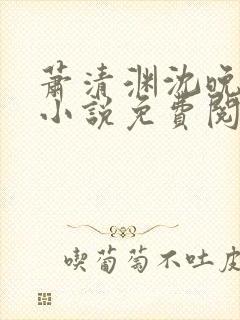 萧清渊沈晚
小說免費閱
喫葡萄不吐皮